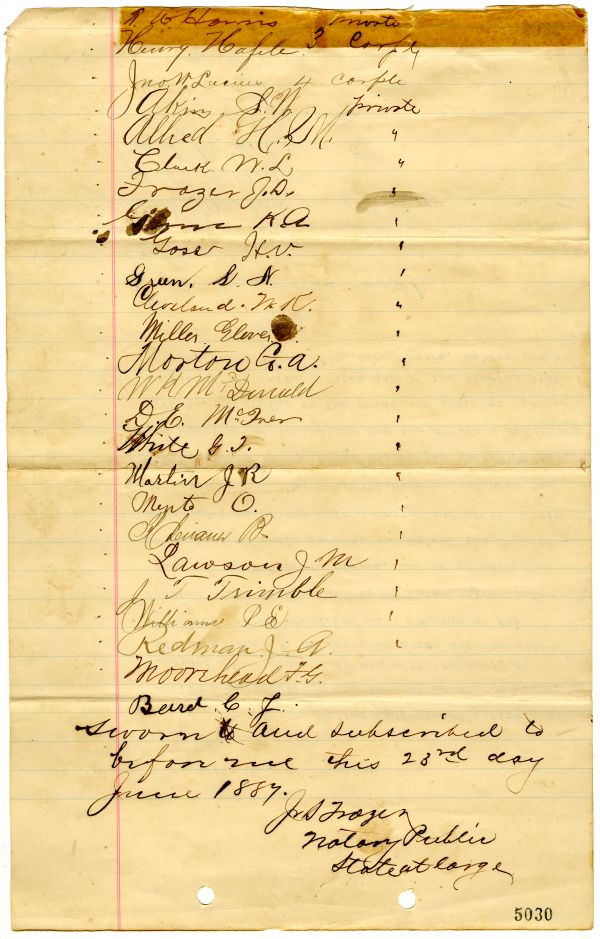 Harris Private
Henry Hafele 3 Corple
Jno W Lucius 4 Corple
Akin S. W. Private
Allred H. "
Clark W. L "
Frazer J. D. "
K A "
Gose H. V. "
Green, S. N. "
Cleveland. "
Miller Glover "
Morton G. A. "
McDonald "
D. E. McIver "
White G. T. "
Martin J R "
O. "
B. "
Lawson J M "
J T Trimble "
Williams P. E. "
Redman J. A. "
Moorehead F. G.
Beard. C. J.
Sworn to and Subscribed to
before me this 23rd day
June 1887.
Frazer
Notary Public
State at large
5030